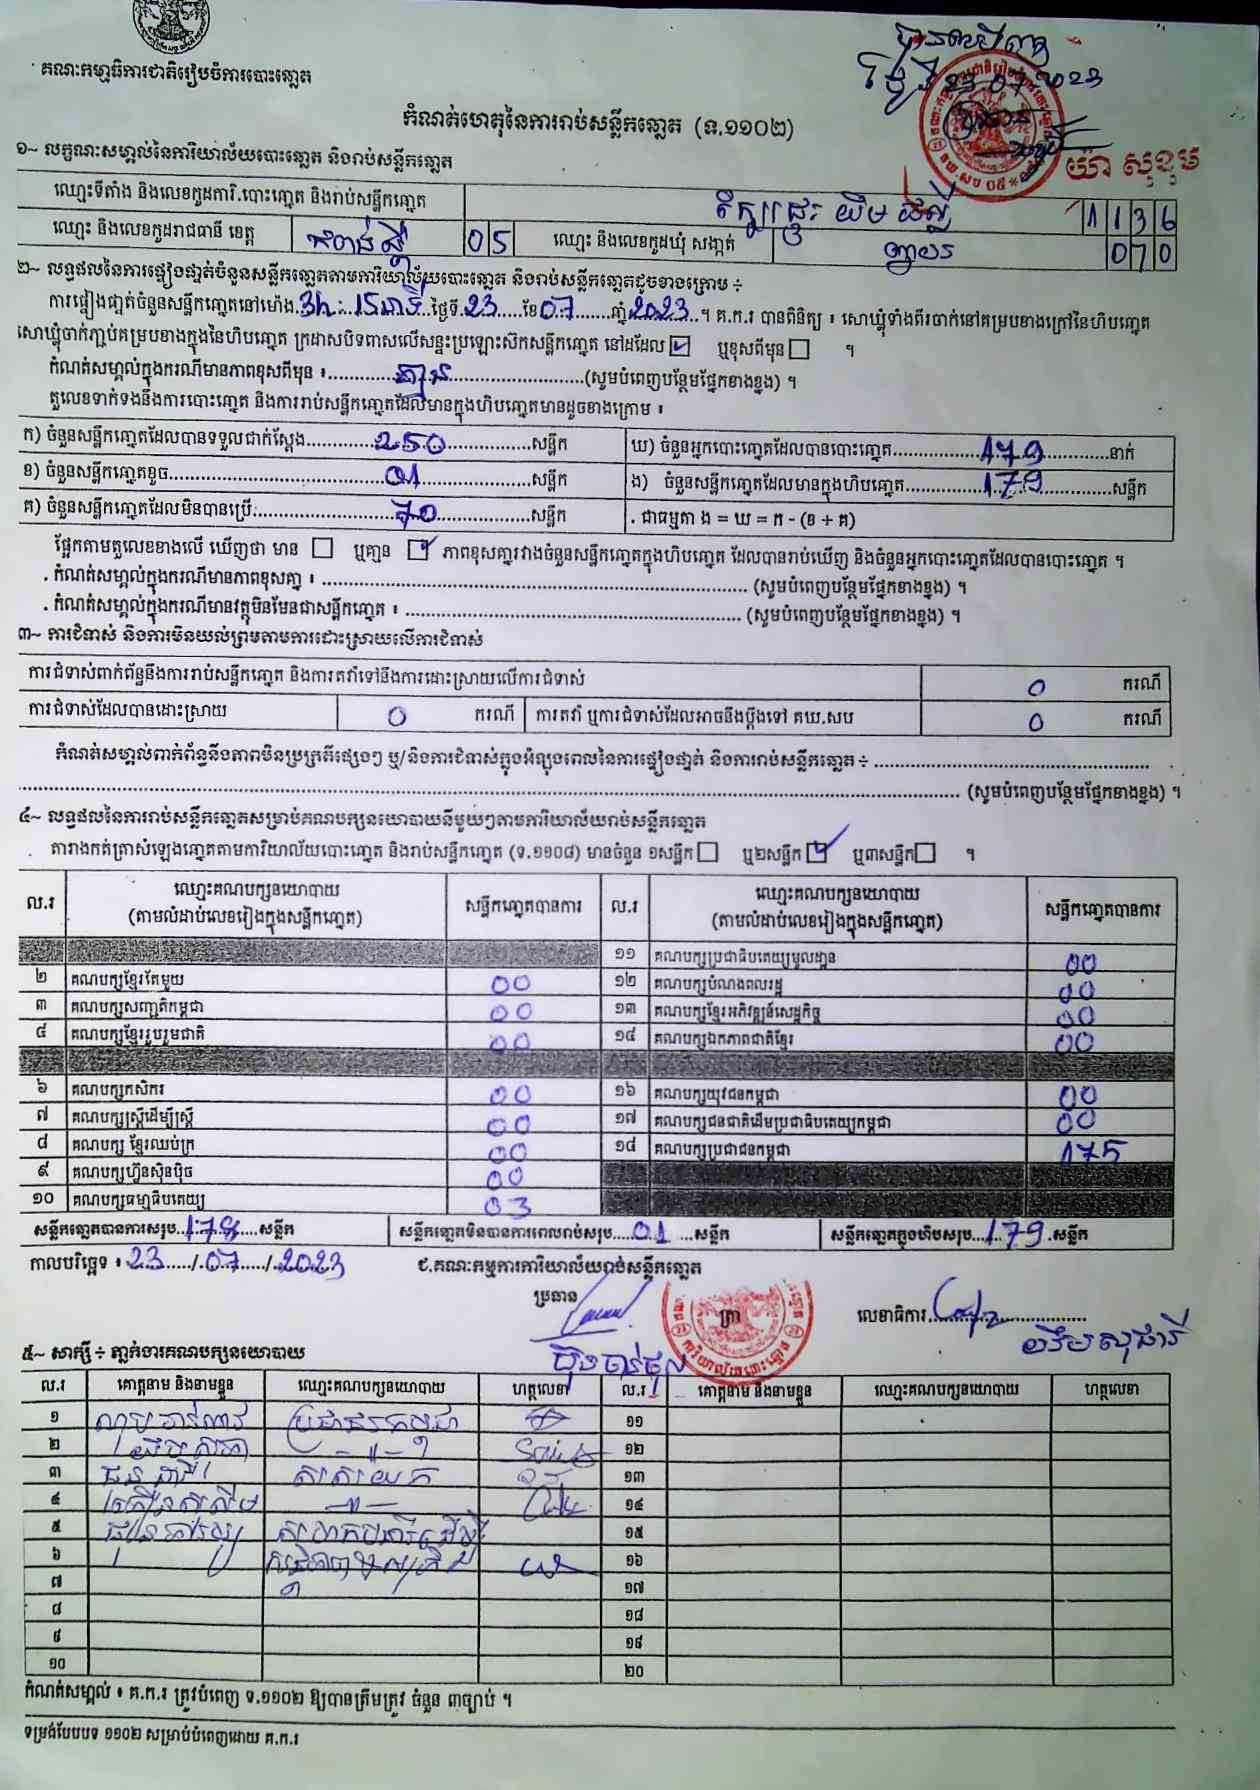 គណៈកម្មាធិការជាតិរៀបចំការបោះឆ្នោត
23.07.2023
កំណត់ហេតុនៃការរាប់សន្លឹកឆ្នោត (ទ.១១០២)
យ៉ា សុខុម
១~ លក្ខណៈសម្គាល់នៃការិយាល័យបោះឆ្នោត និងរាប់សន្លឹកឆ្នោត
ឈ្មោះទីតាំង និងលេខកូដការិ.បោះឆ្នោត និងរាប់សន្លឹកឆ្នោត 1136
ឈ្មោះ និងលេខកូដរាជធានី ខេត្ត កំពង់ស្ពឺ 05 ឈ្មោះ និងលេខកូដឃុំ សង្កាត់ 070
២~ លទ្ធផលនៃការផ្ទៀងផ្ទាត់ចំនួនសន្លឹកឆ្នោតតាមការិយាល័យបោះឆ្នោត និងរាប់សន្លឹកឆ្នោតដូចខាងក្រោម ÷
ការផ្ទៀងផ្ទាត់ចំនួនសន្លឹកឆ្នោតនៅម៉ោង 3h : 15នាទី ថ្ងៃទី 23 ខែ 07 ឆ្នាំ 2023 ។ គ.ក.រ បានពិនិត្យ ៖ សោឃ្នុំទាំងពីរចាក់នៅគម្របខាងក្រៅនៃហិបឆ្នោត
សោឃ្នុំចាក់ភ្ជាប់គម្របខាងក្នុងនៃហិបឆ្នោត ក្រដាសបិទពាសលើសន្ទះប្រឡោះស៊កសន្លឹកឆ្នោត នៅដដែល ☑ ឬខុសពីមុន ☐ ។
កំណត់សម្គាល់ក្នុងករណីមានភាពខុសពីមុន ៖ គ្មាន (សូមបំពេញបន្ថែមផ្នែកខាងខ្នង) ។
តួលេខទាក់ទងនឹងការបោះឆ្នោត និងការរាប់សន្លឹកឆ្នោតដែលមានក្នុងហិបឆ្នោតមានដូចខាងក្រោម ៖
ក) ចំនួនសន្លឹកឆ្នោតដែលបានទទួលជាក់ស្តែង 250 សន្លឹក ឃ) ចំនួនអ្នកបោះឆ្នោតដែលបានបោះឆ្នោត 179 នាក់
ខ) ចំនួនសន្លឹកឆ្នោតខូច 01 សន្លឹក ង) ចំនួនសន្លឹកឆ្នោតដែលមានក្នុងហិបឆ្នោត 179 សន្លឹក
គ) ចំនួនសន្លឹកឆ្នោតដែលមិនបានប្រើ 70 សន្លឹក . ជាធម្មតា ង = ឃ = ក - (ខ + គ)
ផ្អែកតាមតួលេខខាងលើ ឃើញថា មាន ☐ ឬគ្មាន ☑ ភាពខុសគ្នារវាងចំនួនសន្លឹកឆ្នោតក្នុងហិបឆ្នោត ដែលបានរាប់ឃើញ និងចំនួនអ្នកបោះឆ្នោតដែលបានបោះឆ្នោត ។
. កំណត់សម្គាល់ក្នុងករណីមានភាពខុសគ្នា ៖ (សូមបំពេញបន្ថែមផ្នែកខាងខ្នង) ។
. កំណត់សម្គាល់ក្នុងករណីមានវត្ថុមិនមែនជាសន្លឹកឆ្នោត ៖ (សូមបំពេញបន្ថែមផ្នែកខាងខ្នង) ។
៣~ ការជំទាស់ និងការមិនយល់ព្រមតាមការដោះស្រាយលើការជំទាស់
ការជំទាស់ពាក់ព័ន្ធនឹងការរាប់សន្លឹកឆ្នោត និងការតវ៉ាទៅនឹងការដោះស្រាយលើការជំទាស់ 0 ករណី
ការជំទាស់ដែលបានដោះស្រាយ 0 ករណី ការតវ៉ា ឬការជំទាស់ដែលអាចនឹងប្តឹងទៅ គឃ.សប 0 ករណី
កំណត់សម្គាល់ពាក់ព័ន្ធនឹងភាពមិនប្រក្រតីផ្សេងៗ ឬ/និងការជំទាស់ក្នុងអំឡុងពេលនៃការផ្ទៀងផ្ទាត់ និងការរាប់សន្លឹកឆ្នោត ÷
(សូមបំពេញបន្ថែមផ្នែកខាងខ្នង) ។
៤~ លទ្ធផលនៃការរាប់សន្លឹកឆ្នោតសម្រាប់គណបក្សនយោបាយនីមួយៗតាមការិយាល័យរាប់សន្លឹកឆ្នោត
តារាងកត់ត្រាសំឡេងឆ្នោតតាមការិយាល័យបោះឆ្នោត និងរាប់សន្លឹកឆ្នោត (ទ.១១០៨) មានចំនួន ១សន្លឹក ☐ ឬ២សន្លឹក ☑ ឬ៣សន្លឹក ☐ ។
ល.រ ឈ្មោះគណបក្សនយោបាយ (តាមលំដាប់លេខរៀងក្នុងសន្លឹកឆ្នោត) សន្លឹកឆ្នោតបានការ ល.រ ឈ្មោះគណបក្សនយោបាយ (តាមលំដាប់លេខរៀងក្នុងសន្លឹកឆ្នោត) សន្លឹកឆ្នោតបានការ
១១ គណបក្សប្រជាធិបតេយ្យមូលដ្ឋាន 00
២ គណបក្សខ្មែរតែមួយ 00 ១២ គណបក្សបំណងពលរដ្ឋ 00
៣ គណបក្សសញ្ជាតិកម្ពុជា 00 ១៣ គណបក្សខ្មែរអភិវឌ្ឍន៍សេដ្ឋកិច្ច 00
៤ គណបក្សខ្មែររួបរួមជាតិ 00 ១៤ គណបក្សឯកភាពជាតិខ្មែរ 00
៦ គណបក្សកសិករ 00 ១៦ គណបក្សយុវជនកម្ពុជា 00
៧ គណបក្សស្ត្រីដើម្បីស្ត្រី 00 ១៧ គណបក្សជនជាតិដើមប្រជាធិបតេយ្យកម្ពុជា 00
៨ គណបក្ស ខ្មែរឈប់ក្រ 00 ១៨ គណបក្សប្រជាជនកម្ពុជា 175
៩ គណបក្សហ៊្វុនស៊ិនប៉ិច 00
១០ គណបក្សធម្មាធិបតេយ្យ 03
សន្លឹកឆ្នោតបានការសរុប 178 សន្លឹក សន្លឹកឆ្នោតមិនបានការពេលរាប់សរុប 01 សន្លឹក សន្លឹកឆ្នោតក្នុងហិបសរុប 179 សន្លឹក
កាលបរិច្ឆេទ ៖ 23 / 07 / 2023 ជ.គណៈកម្មការការិយាល័យរាប់សន្លឹកឆ្នោត
ប្រធាន ត្រា លេខាធិការ
៥~ សាក្សី ÷ ភ្នាក់ងារគណបក្សនយោបាយ
ល.រ គោត្តនាម និងនាមខ្លួន ឈ្មោះគណបក្សនយោបាយ ហត្ថលេខា ល.រ គោត្តនាម និងនាមខ្លួន ឈ្មោះគណបក្សនយោបាយ ហត្ថលេខា
១ ប្រជាជនកម្ពុជា ១១
២ ១២
៣ ១៣
៤ ១៤
៥ ១៥
៦ ១៦
៧ ១៧
៨ ១៨
៩ ១៩
១០ ២០
កំណត់សម្គាល់ ៖ គ.ក.រ ត្រូវបំពេញ ទ.១១០២ ឱ្យបានត្រឹមត្រូវ ចំនួន ៣ច្បាប់ ។
ទម្រង់បែបបទ ១១០២ សម្រាប់បំពេញដោយ គ.ក.រ